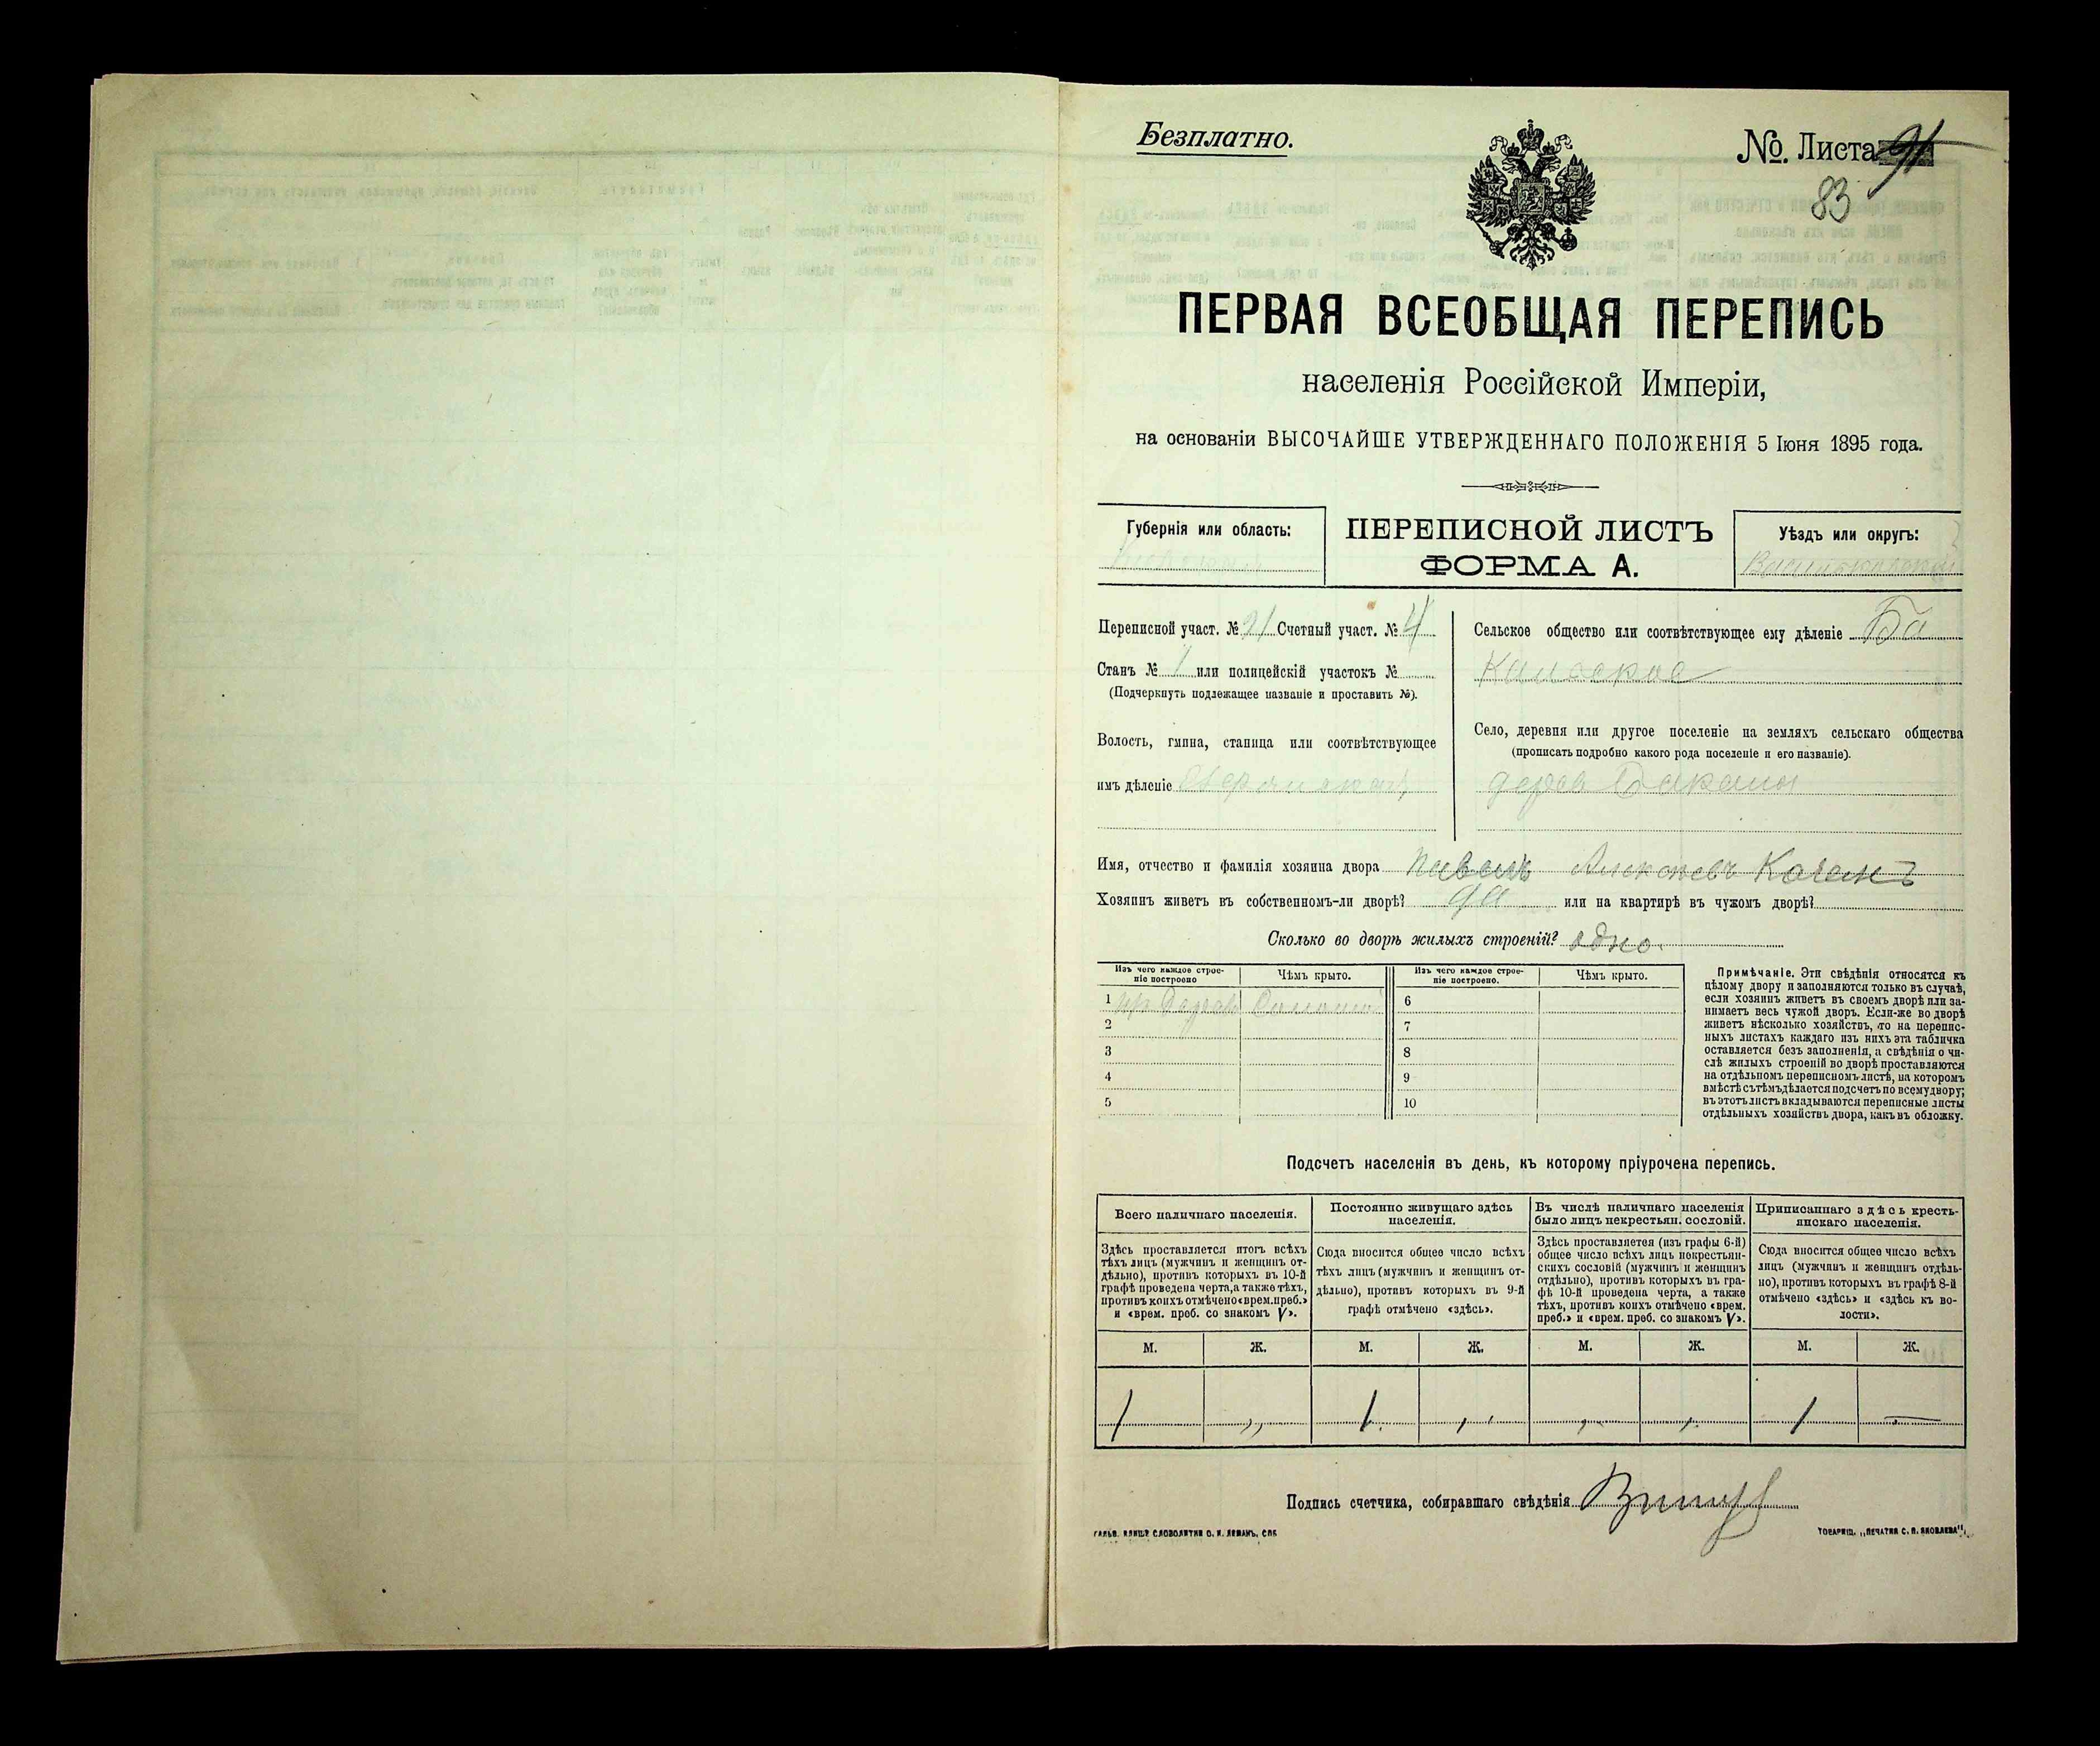 Безплатно.
№. Листа 91
83
ПЕРВАЯ ВСЕОБЩАЯ ПЕРЕПИСЬ
населенія Россійской Имперіи,
на основаніи ВЫСОЧАЙШЕ УТВЕРЖДЕННАГО ПОЛОЖЕНІЯ 5 Іюня 1895 года.
Губернія или область:
ПЕРЕПИСНОЙ ЛИСТЪ
ФОРМА А.
Уѣздъ или округъ:
Переписной участ. № 21 Счетный участ. № 4
Станъ № 1 или полицейскій участокъ №
(Подчеркнуть подлежащее названіе и проставить №).
Волость, гмина, станица или соотвѣтствующее
имъ дѣленіе
Сельское общество или соотвѣтствующее ему дѣленіе Ба
Село, деревня или другое поселеніе на земляхъ сельскаго общества
(прописать подробно какого рода поселеніе и его названіе).
дерев
Имя, отчество и фамилія хозяина двора
Хозяинъ живетъ въ собственномъ-ли дворѣ? да или на квартирѣ въ чужомъ дворѣ?
Сколько во дворѣ жилыхъ строеній? одно.
Изъ чего каждое строе-
ніе построено
Чѣмъ крыто.
Изъ чего каждое строе-
ніе построено.
Чѣмъ крыто.
1
2
3
4
5
6
7
8
9
10
Примѣчаніе. Эти свѣдѣнія относятся къ
цѣлому двору и заполняются только въ случаѣ,
если хозяинъ живетъ въ своемъ дворѣ или за-
нимаетъ весь чужой дворъ. Если-же во дворѣ
живетъ нѣсколько хозяйствъ, то на перепис-
ныхъ листахъ каждаго изъ нихъ эта табличка
оставляется безъ заполненія, а свѣдѣнія о чи-
слѣ жилыхъ строеній во дворѣ проставляются
на отдѣльномъ переписномъ листѣ, на которомъ
вмѣстѣ съ тѣмъ дѣлается подсчетъ по всему двору;
въ этотъ листъ вкладываются переписные листы
отдѣльныхъ хозяйствъ двора, какъ въ обложку.
Подсчетъ населенія въ день, къ которому пріурочена перепись.
Всего наличнаго населенія.
Здѣсь проставляется итогъ всѣхъ
тѣхъ лицъ (мужчинъ и женщинъ от-
дѣльно), противъ которыхъ въ 10-й
графѣ проведена черта, а также тѣхъ,
противъ коихъ отмѣчено «врем. преб.»
и «врем. преб. со знакомъ V».
Постоянно живущаго здѣсь
населенія.
Сюда вносится общее число всѣхъ
тѣхъ лицъ (мужчинъ и женщинъ от-
дѣльно), противъ которыхъ въ 9-й
графѣ отмѣчено «здѣсь».
Въ числѣ наличнаго населенія
было лицъ некрестьян. сословій.
Здѣсь проставляется (изъ графы 6-й)
общее число всѣхъ лицъ некрестьян-
скихъ сословій (мужчинъ и женщинъ
отдѣльно), противъ которыхъ въ гра-
фѣ 10-й проведена черта, а также
тѣхъ, противъ коихъ отмѣчено «врем.
преб.» и «врем. преб. со знакомъ V».
Приписаннаго здѣсь кресть-
янскаго населенія.
Сюда вносится общее число всѣхъ
лицъ (мужчинъ и женщинъ отдѣль-
но), противъ которыхъ въ графѣ 8-й
отмѣчено «здѣсь» и «здѣсь къ во-
лости».
М. Ж. М. Ж. М. Ж. М. Ж.
1 „ 1. „ „ „ 1 —
Подпись счетчика, собиравшаго свѣдѣнія
ГАЛЬВ. КЛИШЕ СЛОВОЛИТНИ О. И. ЛЕМАНЪ, СПБ.
ТОВАРИЩ. „ПЕЧАТНЯ С. П. ЯКОВЛЕВА".